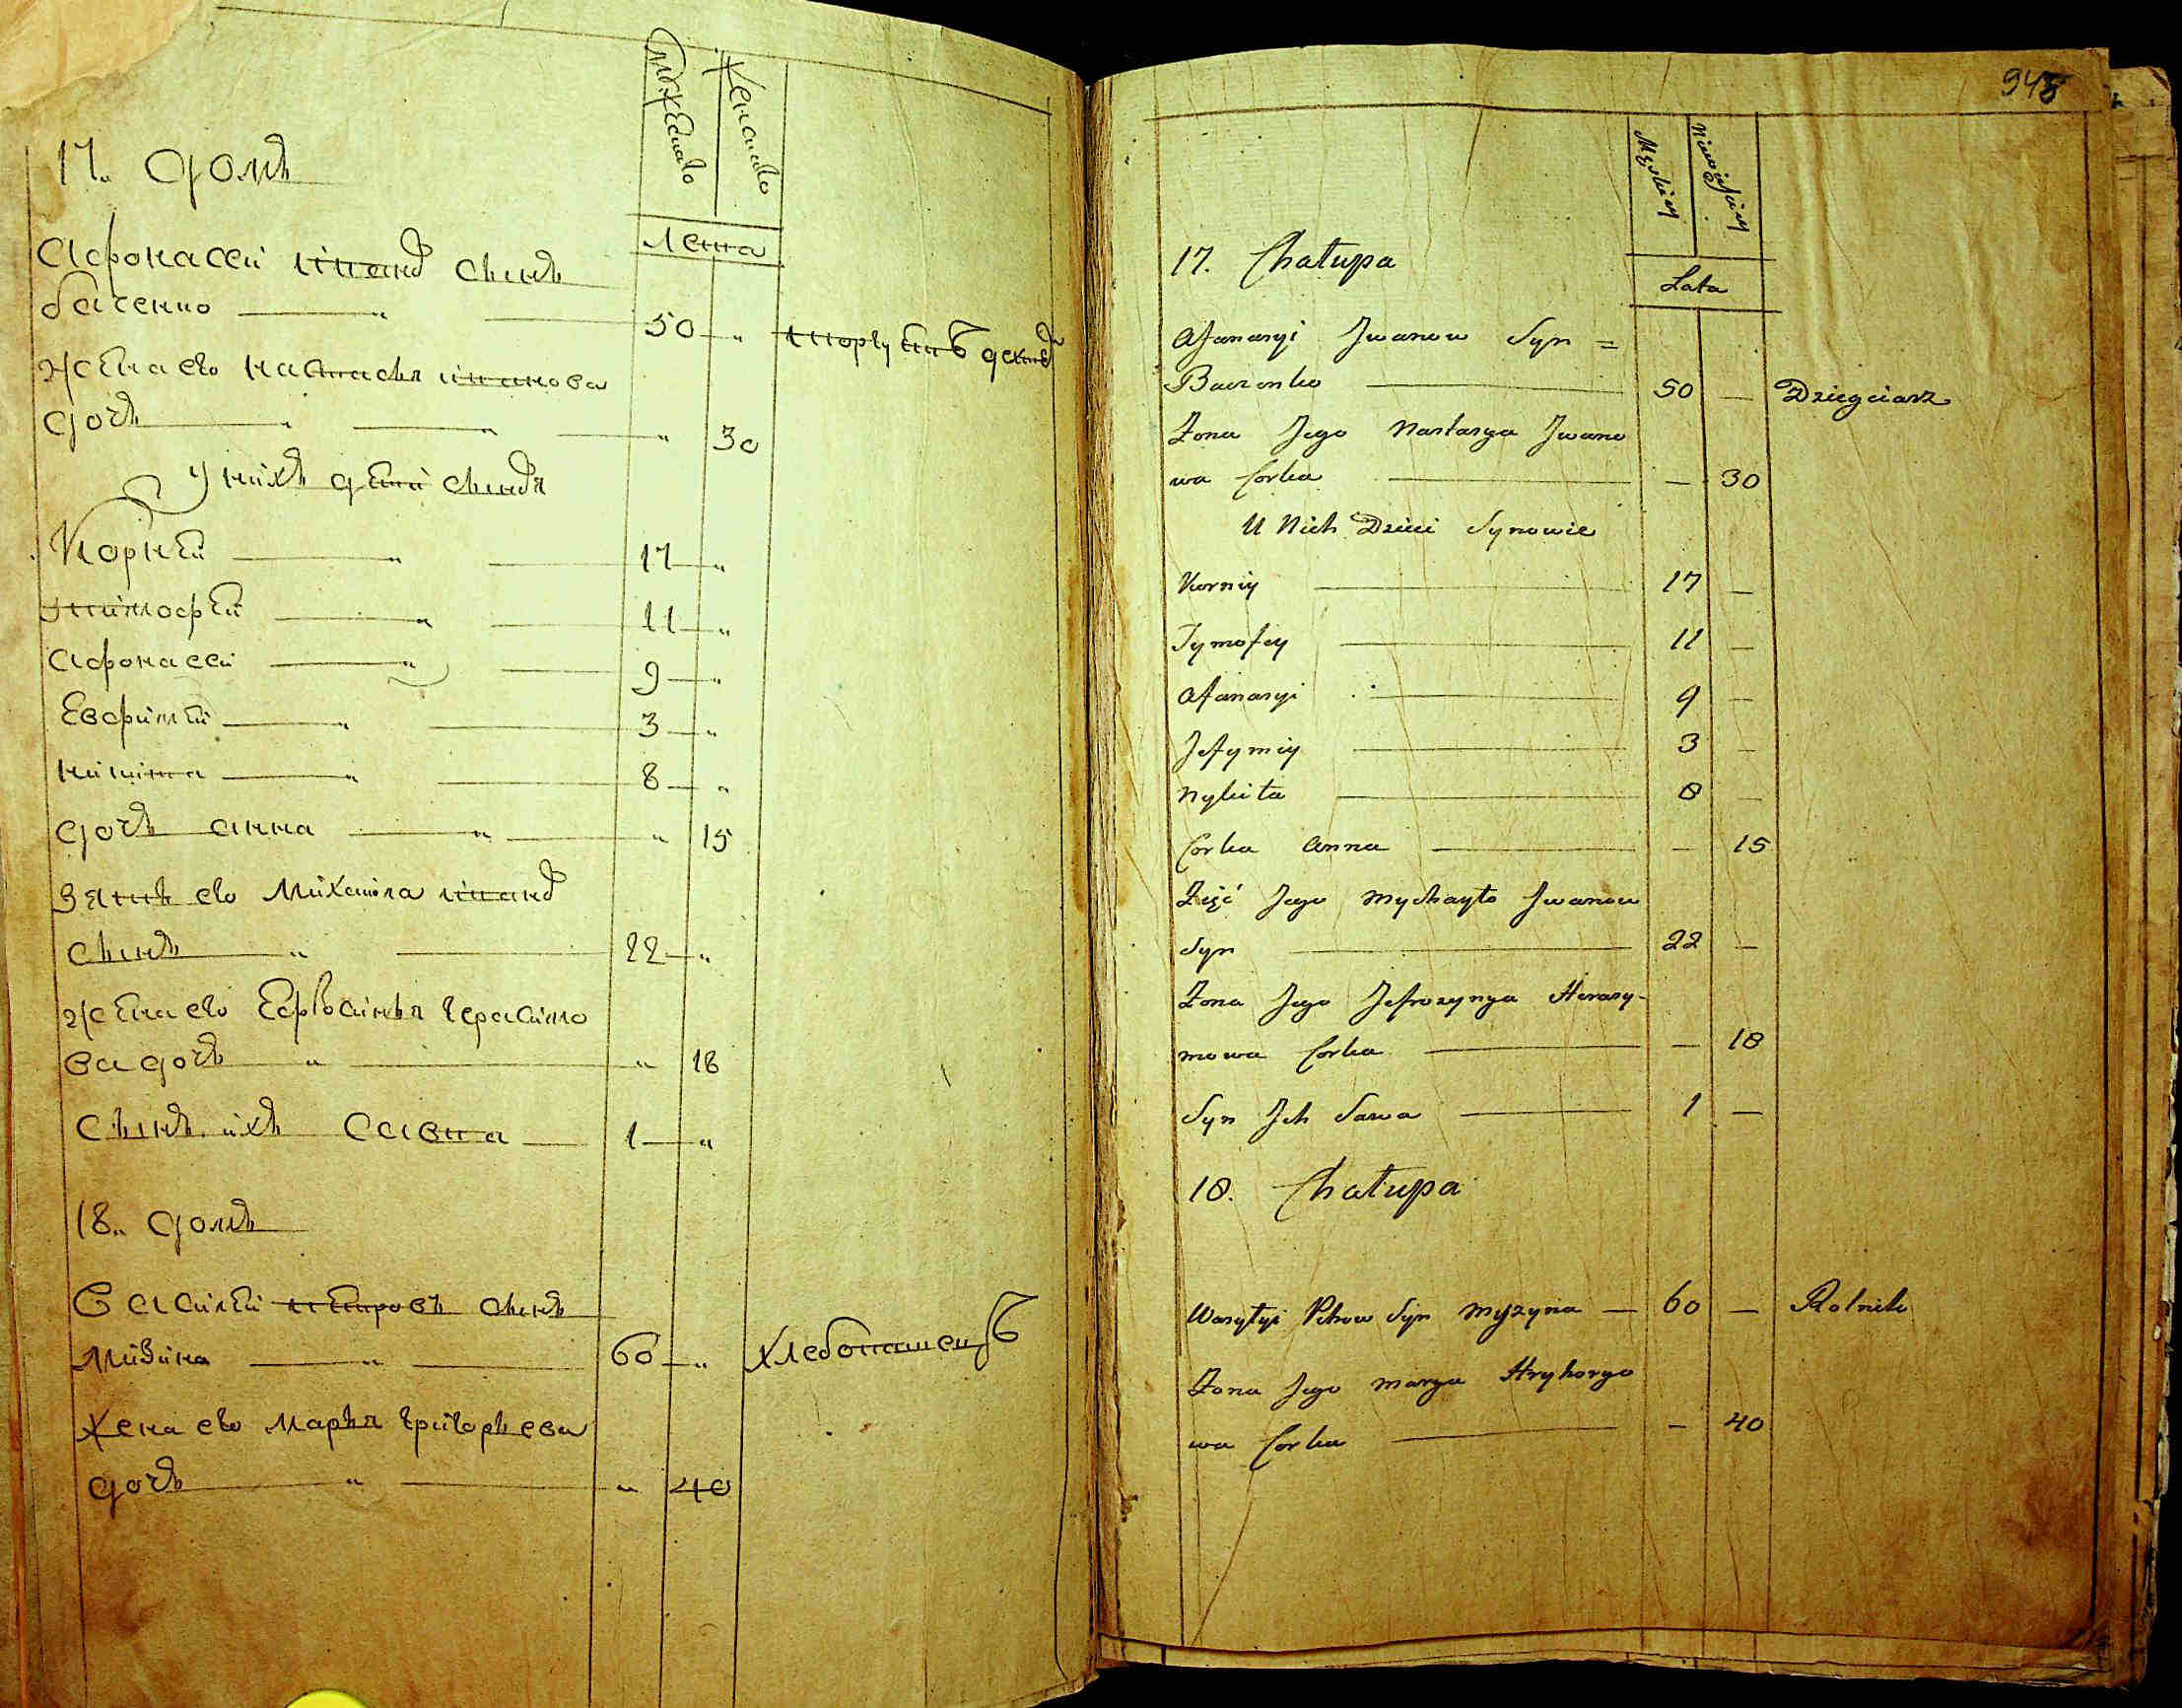 Мужеска
Женска
17. домъ
Лета
Афонасеи Иванъ сынъ
баченко 50 „ торгуетъ дехтемъ
жена его настасья иванова
дочъ „ „ „ 30
У нихъ дети сыновя
Корнеи „ 17 „
тимофеи „ 11 „
Афонасеи „ 9 „
Евфимеи „ 3 „
никита „ 8 „
дочъ анна „ „ 15
Зять его михаила иванъ
сынъ „ 22 „
жена его Ефросинья герасимо
ва дочъ „ „ 18
Сынъ ихъ Савка 1 „
18. домъ
Василеи петровъ сынъ
мизина „ 60 „ хлебопашецъ
Жена его марья григорьева
дочъ „ „ 40
948
Męskiey
Niewieściey
17. Chałupa
Lata
Afanasyi Jwanow Syn =
Baczenko — 50 — Dziegciarz
Zona Jego Nastasya Jwano
wa Corka — — 30
U Nich Dzieci Synowie
Korniy — 17 —
Tymofey — 11 —
Afanasyi — 9 —
Jefymiy — 3 —
Nykita — 8 —
Corka Anna — — 15
Zięć Jego Mychayło Jwanow
Syn — 22 —
Zona Jego Jefrozynya Herasy-
mowa Corka — — 18
Syn Jch Sawa — 1 —
18. Chałupa
Wasylyi Petrow Syn Myzyna — 60 — Rolnik
Zona Jego Marya Hryhorye
wa Corka — — 40